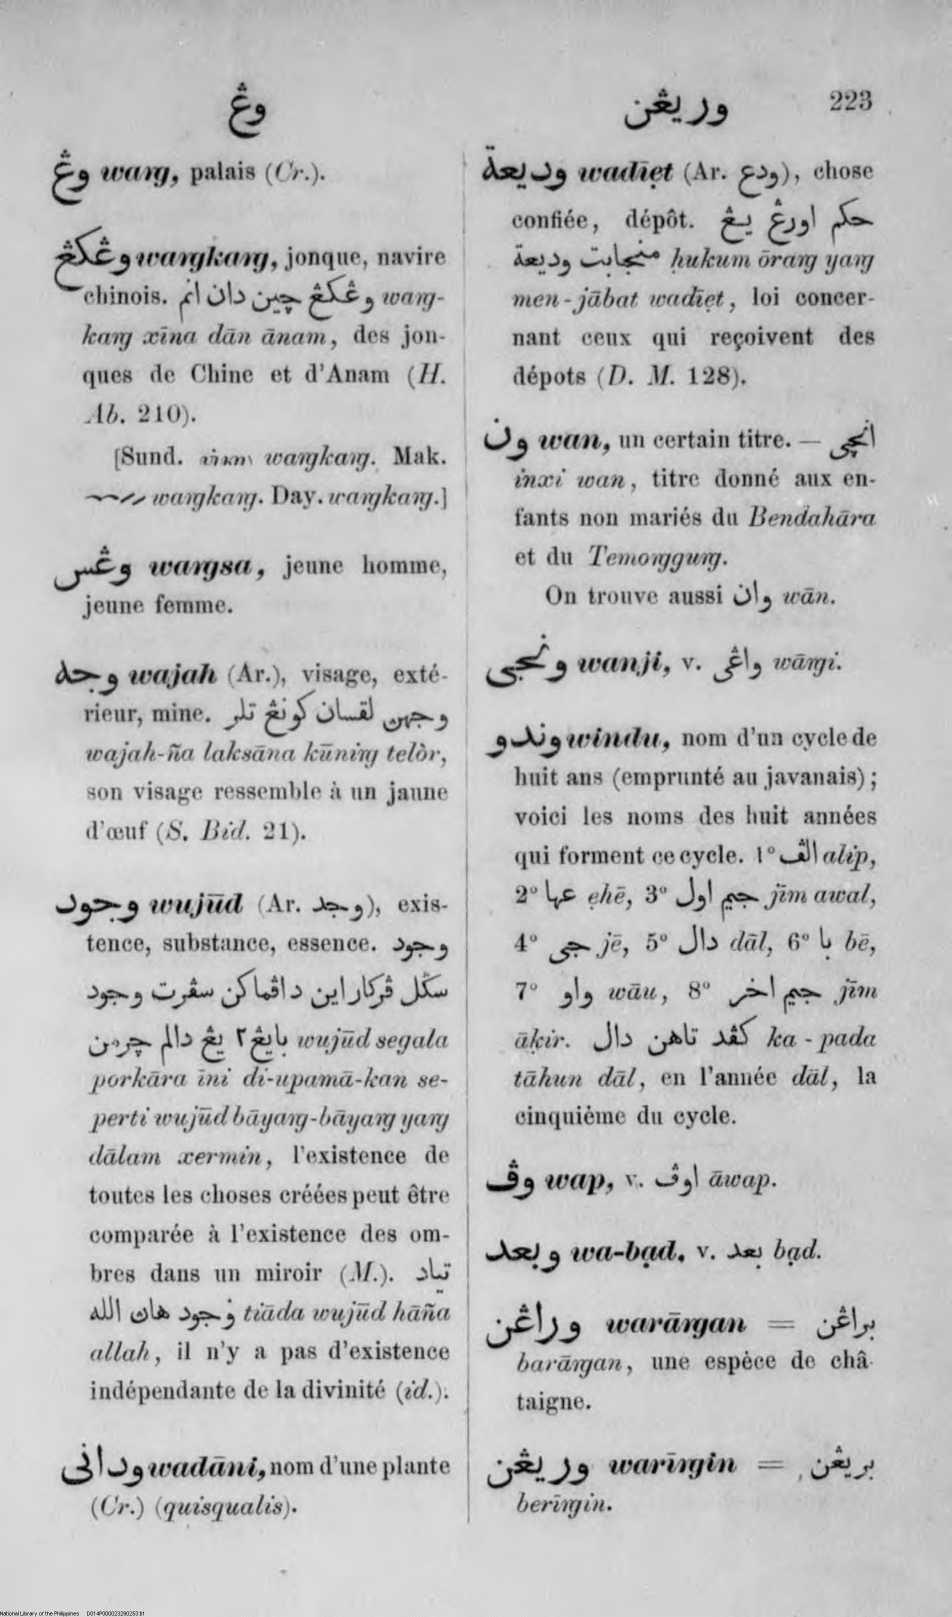 وڠ
وريڠن 223
وڠ warg, palais (Cr.).
وڠكڠ wargkarg, jonque, navire
chinois. وڠكڠ چين دان انم warg-
karg xīna dān ānam, des jon-
ques de Chine et d'Anam (H.
Ab. 210).
[Sund. wargkarg. Mak.
wargkarg. Day. wargkarg.]
وڠس wargsa, jeune homme,
jeune femme.
وجه wajah (Ar.), visage, exté-
rieur, mine. وجهن لقسان كونڠ تلر
wajah-ña laksāna kūnirg telòr,
son visage ressemble à un jaune
d'œuf (S. Bid. 21).
وجود wujūd (Ar. وجد), exis-
tence, substance, essence. وجود
سڬل ڤركار اين داڤماكن سڤرت وجود
بايڠ٢ يڠ دالم چرمن wujūd segala
porkāra īni di-upamā-kan se-
perti wujūd bāyarg-bāyarg yarg
dālam xermin, l'existence de
toutes les choses créées peut être
comparée à l'existence des om-
bres dans un miroir (M.). تياد
وجود هاڽ الله tiāda wujūd hāña
allah, il n'y a pas d'existence
indépendante de la divinité (id.).
وداني wadāni, nom d'une plante
(Cr.) (quisqualis).
وديعة wadīẹt (Ar. ودع), chose
confiée, dépôt. حكم اورڠ يڠ
منجابت وديعة ḥukum ōrarg yarg
men-jābat wadīẹt, loi concer-
nant ceux qui reçoivent des
dépots (D. M. 128).
ون wan, un certain titre. — انچي
inxi wan, titre donné aux en-
fants non mariés du Bendahāra
et du Temorggurg.
On trouve aussi وان wān.
ونجي wanji, v. واڠي wārgi.
وندو windu, nom d'un cycle de
huit ans (emprunté au javanais);
voici les noms des huit années
qui forment ce cycle. 1° الف alip,
2° عها ẹhē, 3° جيم اول jīm awal,
4° جي jē, 5° دال dāl, 6° با bē,
7° واو wāu, 8° جيم اخر jīm
āḳir. كڤد تاهن دال ka-pada
tāhun dāl, en l'année dāl, la
cinquième du cycle.
وڤ wap, v. اوڤ āwap.
وبعد wa-bạd, v. بعد bạd.
وراڠن warārgan = براڠن
barārgan, une espèce de châ-
taigne.
وريڠن warīrgin = بريڠن
berīrgin.
National Library of the Philippines